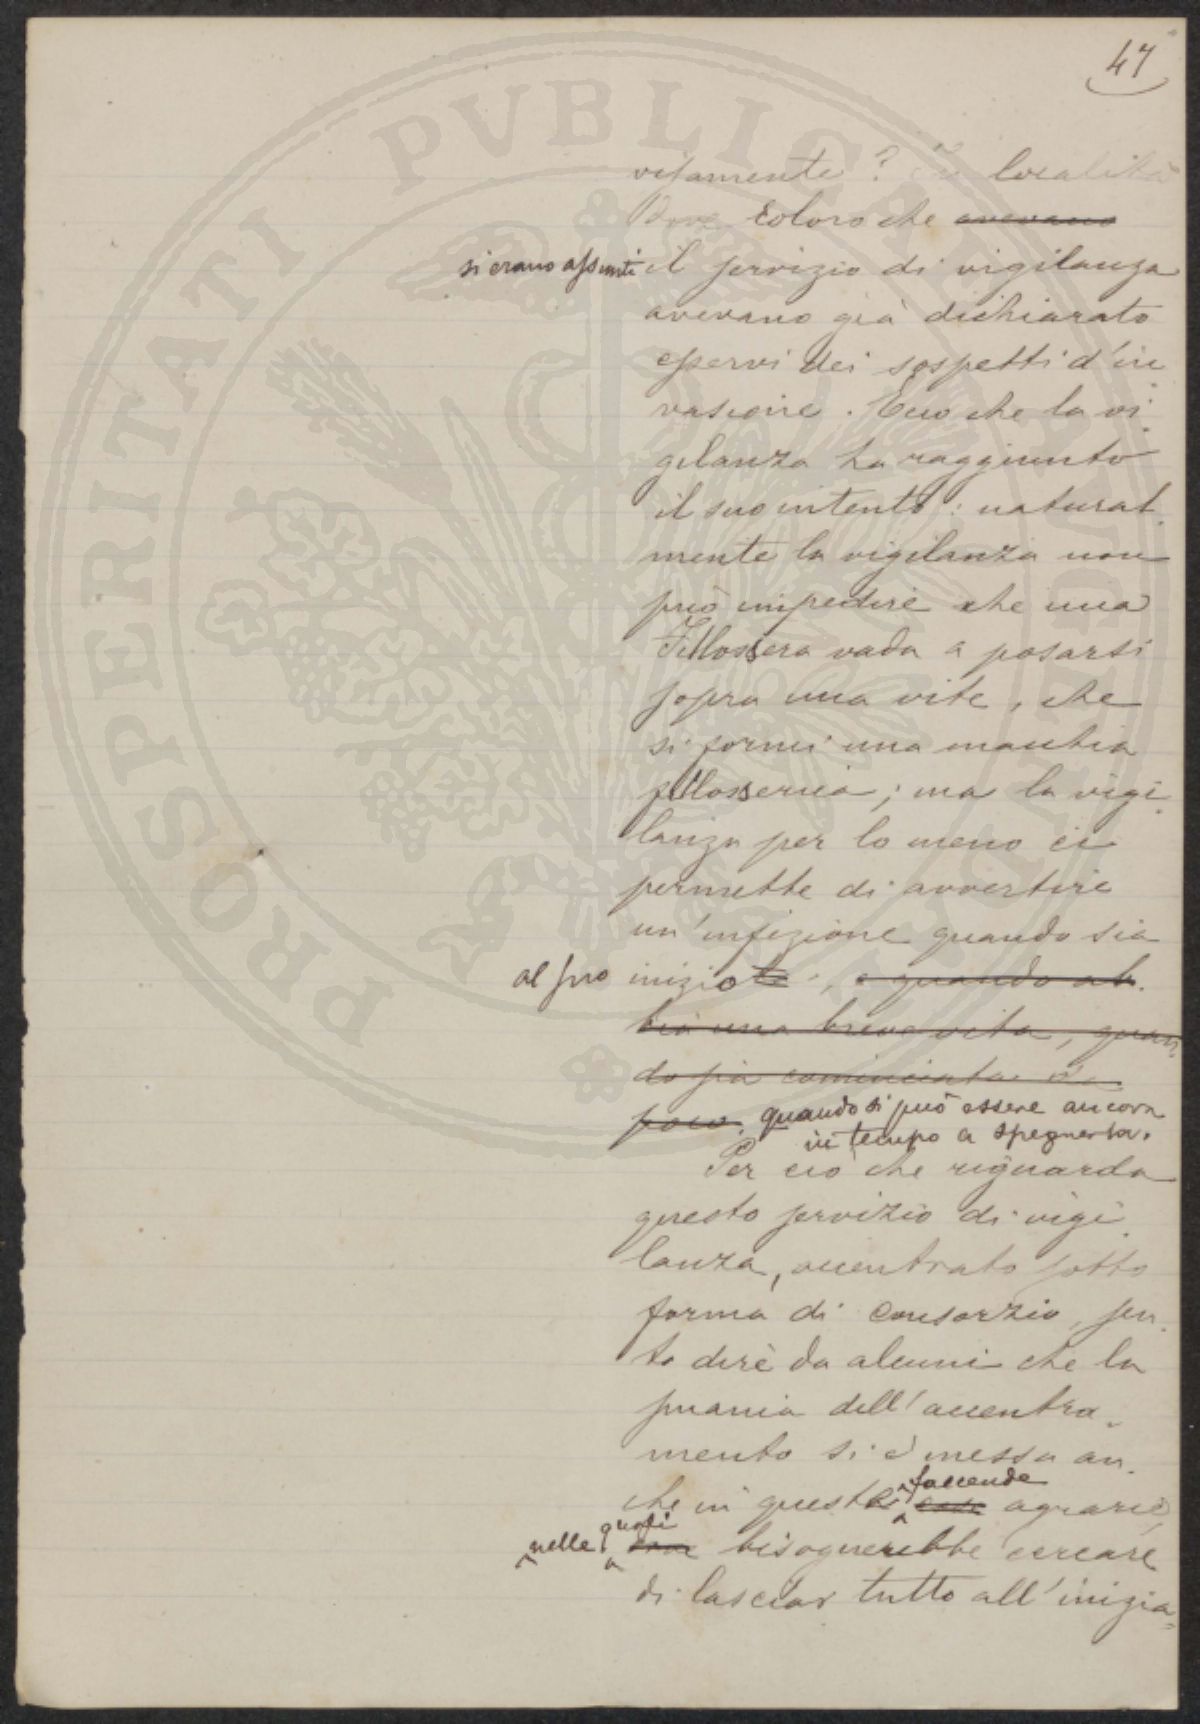 47
visamente? in località
dove coloro che avevano
si erano assunti il servizio di vigilanza
avevano già dichiarato
esservi dei sospetti d'in
vasione. Ecco che la vi-
gilanza ha raggiunto
il suo intento: natural-
mente la vigilanza non
può impedire che una
Fillossera vada a posarsi
sopra una vite, che
si formi una macchia
fillosserica; ma la vigi-
lanza per lo meno ci
permette di avvertire
un'infezione quando sia
al suo inizio, e quando ab-
bia una breve vita, quan-
do sia cominciata da
poco. quando si può essere ancora
in tempo a spegnerla.
Per ciò che riguarda
questo servizio di vigi-
lanza, accentrato sotto
forma di Consorzio, sen-
to dire da alcuni che la
smania dell'accentra-
mento si è messa an-
che in queste faccende cose agrarie,
nelle quali bisognerebbe cercare
di lasciar tutto all'inizia=
PROSPERITATI PVBLICAE AVGENDAE